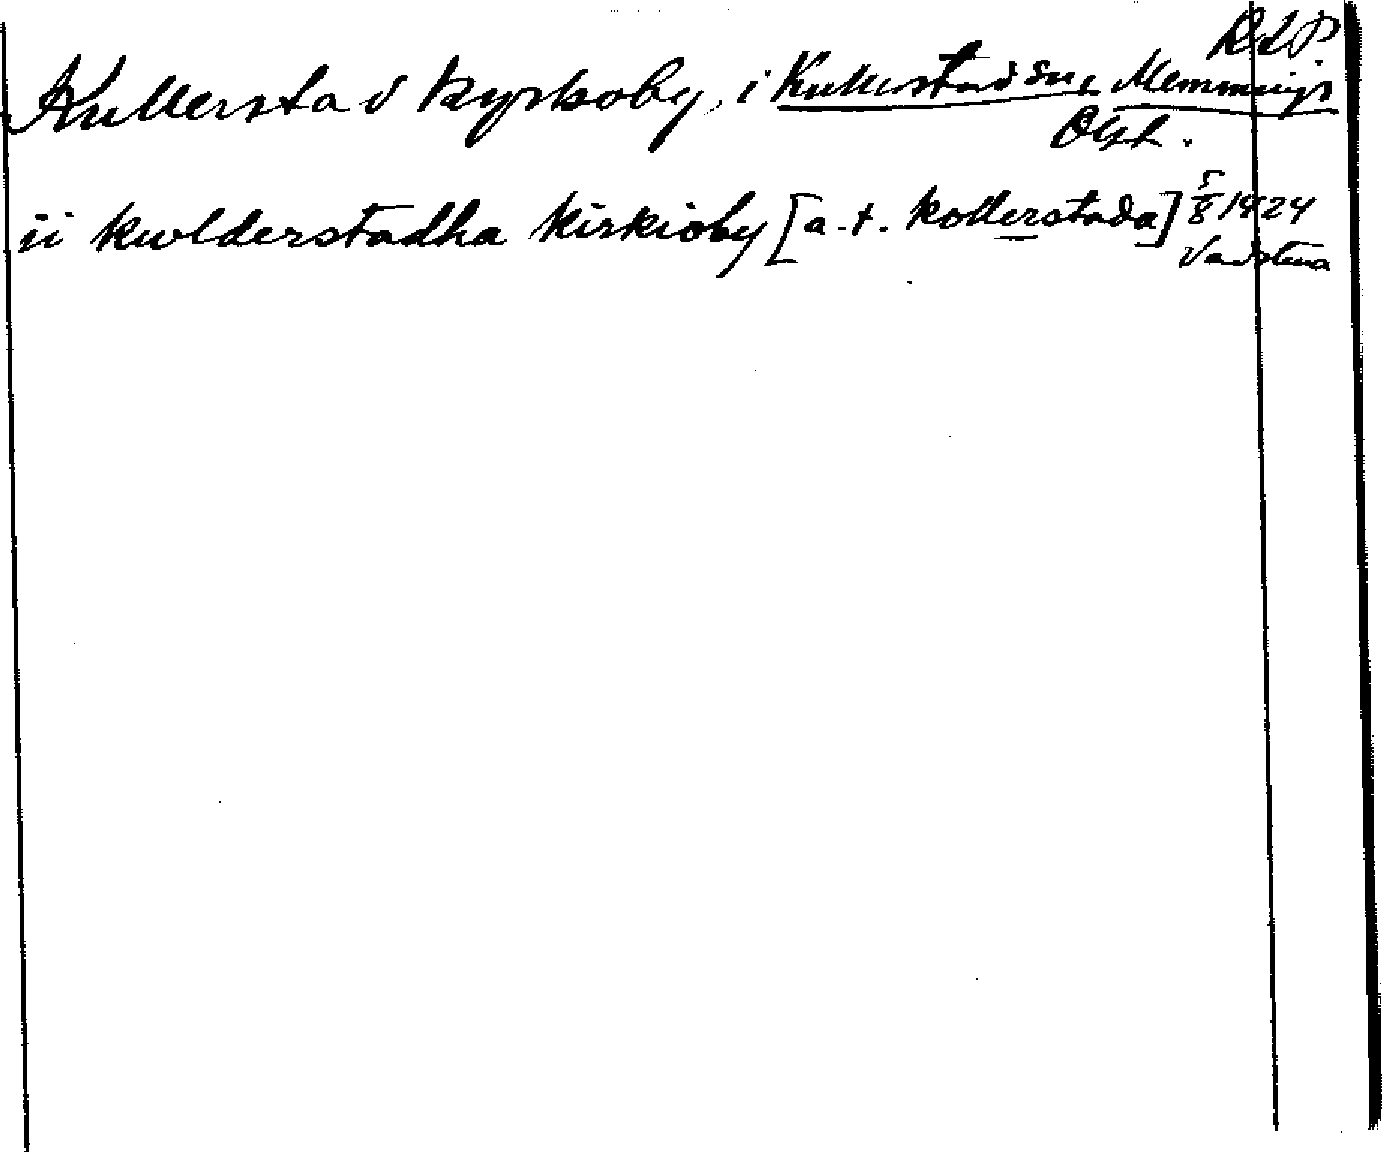 RAP
Kullerstad kyrkoby, i Kullerstad sn, Memmings
Ögl.
ii kwlderstadha kirkioby [a.t. kollerstada] 5/8 1424
Vadstena